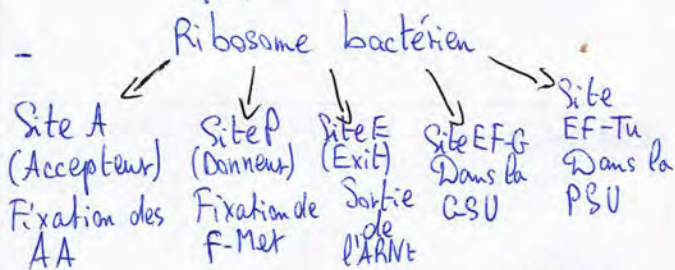 - Ribosome bactérien
Site A
(Accepteur)
Fixation des
AA
Site P
(Donneur)
Fixation de
F-Met
Site E
(Exit)
Sortie
de
l'ARNt
Site EF-G
Dans la
GSU
Site
EF-Tu
Dans la
PSU